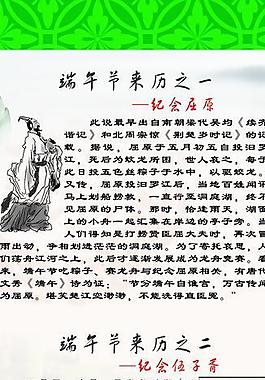 端午节来历之一
——纪念屈原
此说最早出自南朝梁代吴均《续齐
谐记》和北周宗懔《荆楚岁时记》的记
载。据说，屈原于五月初五自投汨罗
江，死后为蛟龙所困，世人哀之，每于
此日投五色丝粽子于水中，以驱蛟龙。
又传，屈原投汨罗江后，当地百姓闻讯
马上划船捞救，一直行至洞庭湖，终不
见屈原的尸体。那时，恰逢雨天，湖面
上的小舟一起汇集在岸边的亭子旁。当
人们得知是打捞贤臣屈大夫时，再次冒
雨出动，争相划进茫茫的洞庭湖。为了寄托哀思，人
们荡舟江河之上，此后才逐渐发展成为龙舟竞赛。看
来，端午节吃粽子、赛龙舟与纪念屈原相关，有唐代
文秀《端午》诗为证：“节分端午自谁言，万古传闻
为屈原。堪笑楚江空渺渺，不能洗得直臣冤。”
端午节来历之二
——纪念伍子胥